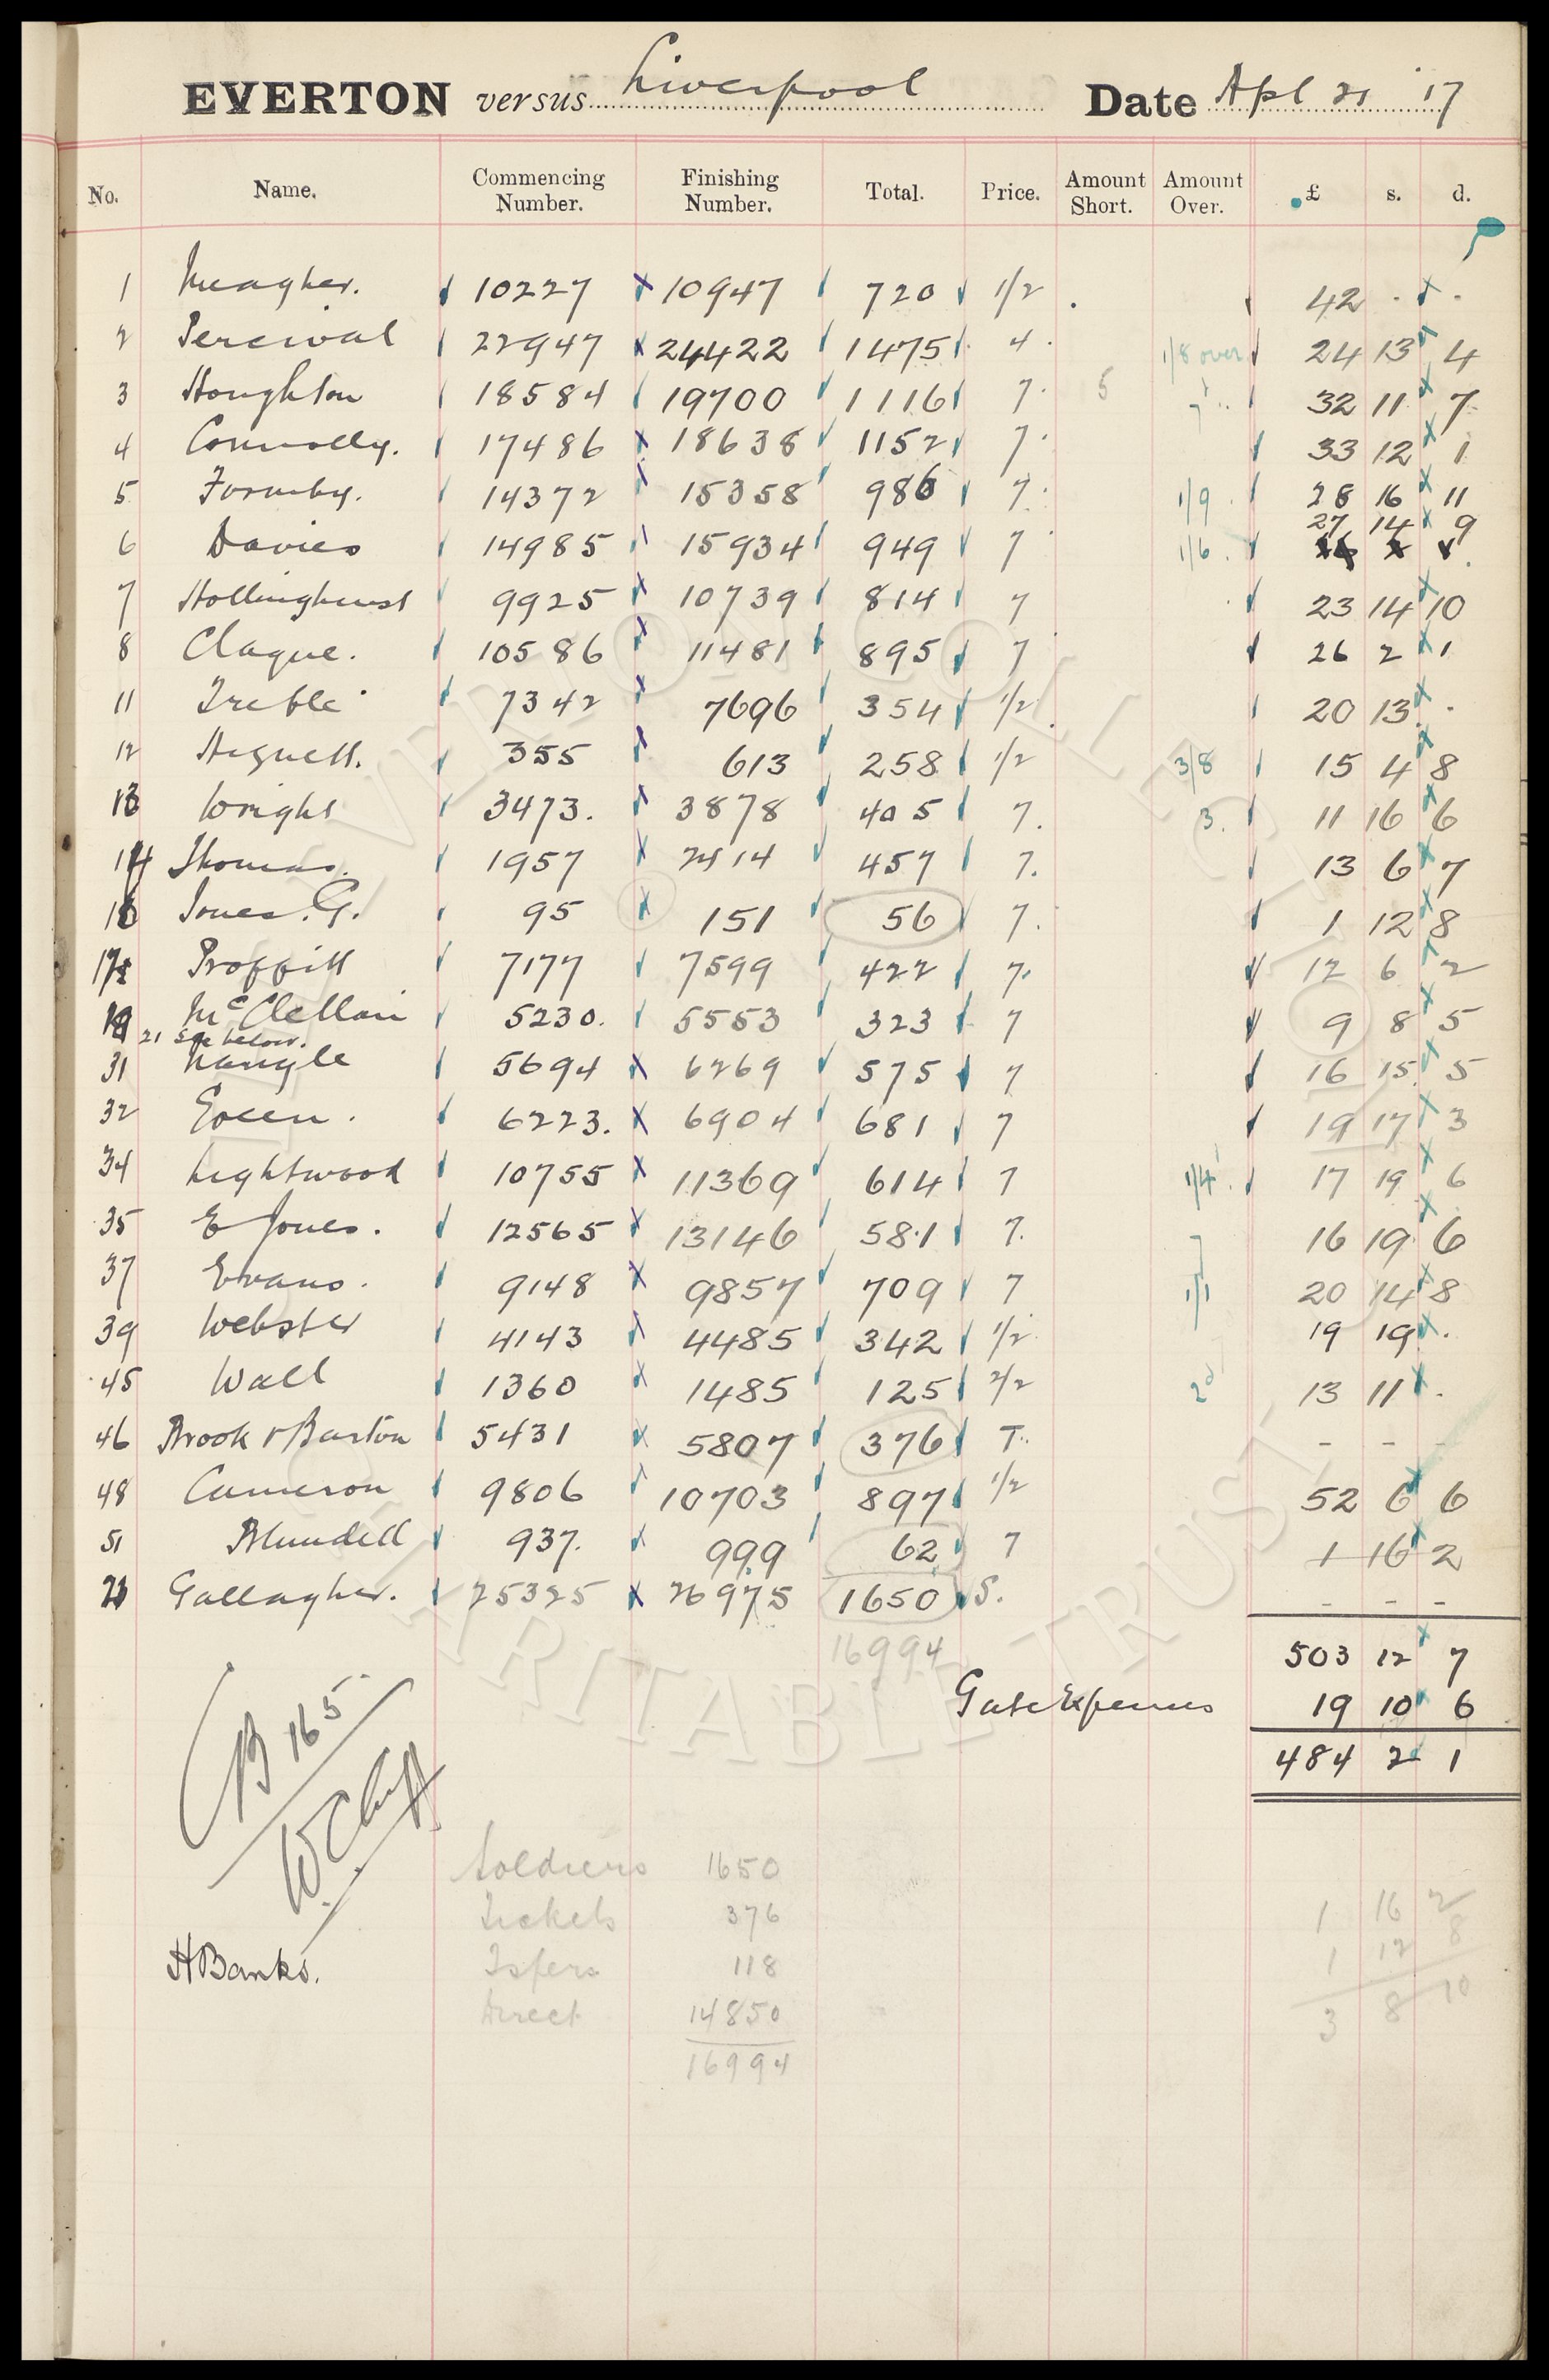 EVERTON versus Liverpool Date Apl 21 '17
No. Name. Commencing Number. Finishing Number. Total. Price. Amount Short. Amount Over. £ s. d.
1 Meagher. 10227 10947 720 1/2 42 . .
2 Percival 22947 24422 1475 4. 1/8 over 24 13 4
3 Houghton 18584 19700 1116 7. 5 32 11 7
4 Connolly. 17486 18638 1152 7. 33 12 1
5 Formby. 14372 15358 986 7. 1/9 28 16 11
6 Davies 14985 15934 949 7 1/6 27 14 9
7 Hollinghurst 9925 10739 814 7 23 14 10
8 Clague. 10586 11481 895 7 26 2 1
11 Treble 7342 7696 354 1/2 20 13 .
12 Hignett. 355 613 258 1/2 3/8 15 4 8
13 Wright 3473. 3878 405 7. 3. 11 16 6
14 Thomas. 1957 2414 457 7. 13 6 7
16 Jones. G. 95 151 56 7. 1 12 8
17 Proffitt 7177 7599 422 7. 12 6 2
19 McClellan 5230. 5553 323 7 9 8 5
21 See below.
31 Nangle 5694 6269 575 7 16 15 5
32 Eoen. 6223. 6904 681 7 19 17 3
34 Lightwood 10755 11369 614 7 1/4 17 19 6
35 E Jones. 12565 13146 581 7. 7 16 19 6
37 Evans. 9148 9857 709 7 1/1 20 14 8
39 Webster 4143 4485 342 1/2 19 19 .
45 Wall 1360 1485 125 2/2 2d 13 11 .
46 Brook & Barton 5431 5807 376 T. - - -
48 Cameron 9806 10703 897 1/2 52 6 6
51 Blundell 937. 999 62 7 1 16 2
21 Gallagher. 25325 26975 1650 S. - - -
16994 503 12 7
Gate Expenses 19 10 6
484 2 1
CB 165
W C Cuff
H Banks.
Soldiers 1650
Tickets 376
Tsfers 118
Direct 14850
16994
1 16 2
1 12 8
3 8 10
EVERTON COLLECTION CHARITABLE TRUST